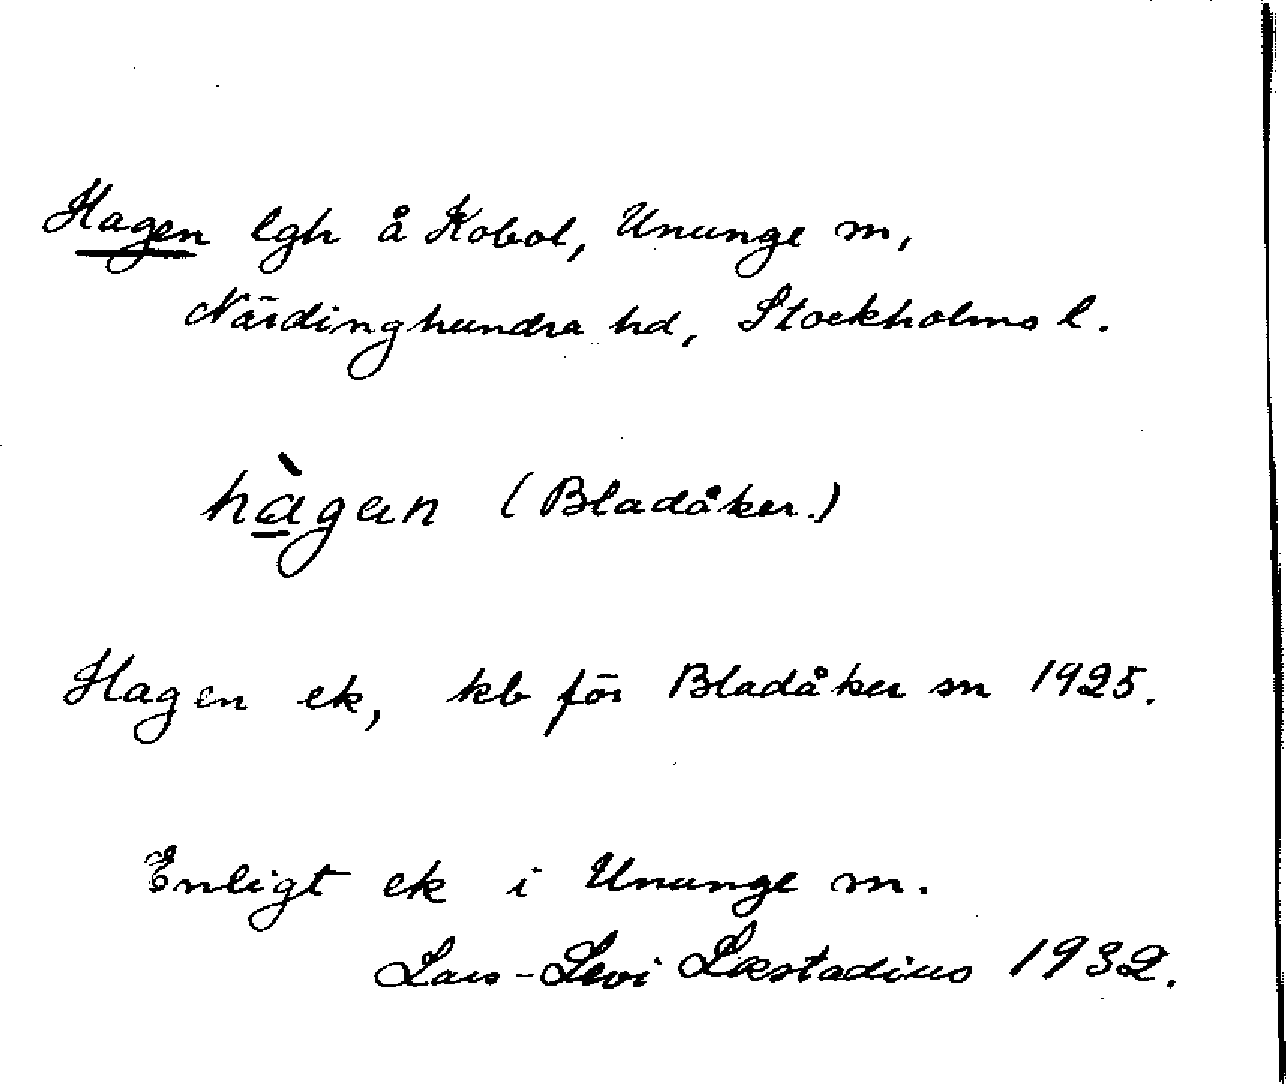 Hagen lgh å Kobol, Ununge sn,
Närdinghundra hd, Stockholms l.
hàgan (Bladåker.)
Hagen ek, kb för Bladåker sn 1925.
Enligt ek i Ununge sn.
Lars-Levi Læstadius 1932.